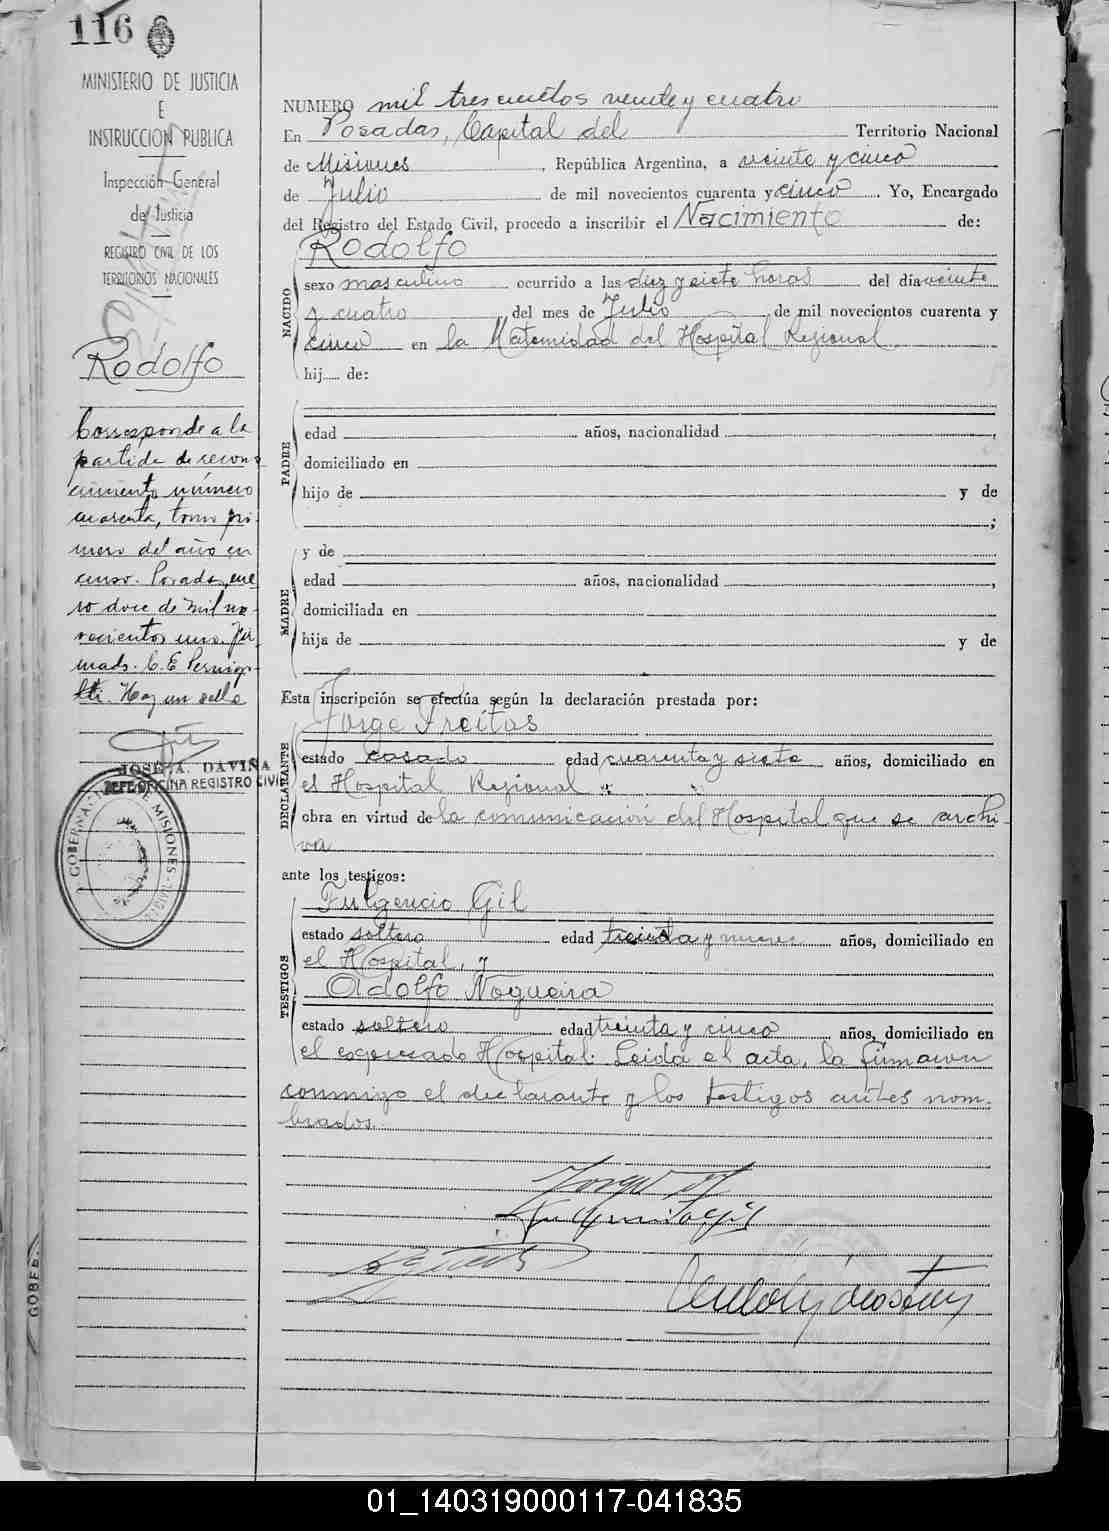 116
MINISTERIO DE JUSTICIA
E
INSTRUCCIÓN PÚBLICA
Inspección General
de Justicia
REGISTRO CIVIL DE LOS
TERRITORIOS NACIONALES
Rodolfo
Corresponde a la
partida de recono
cimiento número
cuarenta, tomo pri
mero del año en
curso. Posadas, ene
ro doce de mil no
vecientos
mado. C. E. Pernigo
tti. Hay un sello
JOSE A. DAVIÑA
JEFE OFICINA REGISTRO CIVIL
GOBERNA MISIONES
NUMERO mil trescientos veinte y cuatro
En Posadas, Capital del Territorio Nacional
de Misiones, República Argentina, a veinte y cinco
de Julio de mil novecientos cuarenta y cinco. Yo, Encargado
del Registro del Estado Civil, procedo a inscribir el Nacimiento de:
NACIDO
Rodolfo
sexo masculino ocurrido a las diez y siete horas del día veinte
y cuatro, del mes de Julio, de mil novecientos cuarenta y
cinco en la Maternidad del Hospital Regional.
hij..... de:
PADRE
edad años, nacionalidad ,
domiciliado en
hijo de y de
;
MADRE
y de
edad años, nacionalidad ,
domiciliada en
hija de y de
Esta inscripción se efectúa según la declaración prestada por:
DECLARANTE
Jorge Freitas
estado casado edad cuarenta y siete años, domiciliado en
el Hospital Regional
obra en virtud de la comunicación del Hospital que se archi
va
ante los testigos:
TESTIGOS
Fulgencio Gil
estado soltero edad treinta y nueve años, domiciliado en
el Hospital, y
Adolfo Nogueira
estado soltero edad treinta y cinco años, domiciliado en
el expresado Hospital. Leida el acta, la firmaron
conmigo el declarante y los testigos antes nom-
brados.
GOBER
01_140319000117-041835